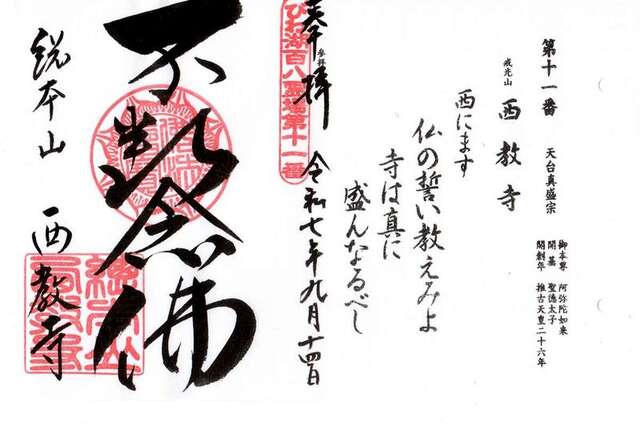 第十一番 天台真盛宗
戒光山 西教寺
御本尊 阿弥陀如来
開基 聖徳太子
開創年 推古天皇二十六年
西にます
仏の誓い教えみよ
寺は真に
盛んなるべし
奉拝 令和七年九月十四日
びわ湖百八霊場第十一番
不断念佛
総本山 西教寺